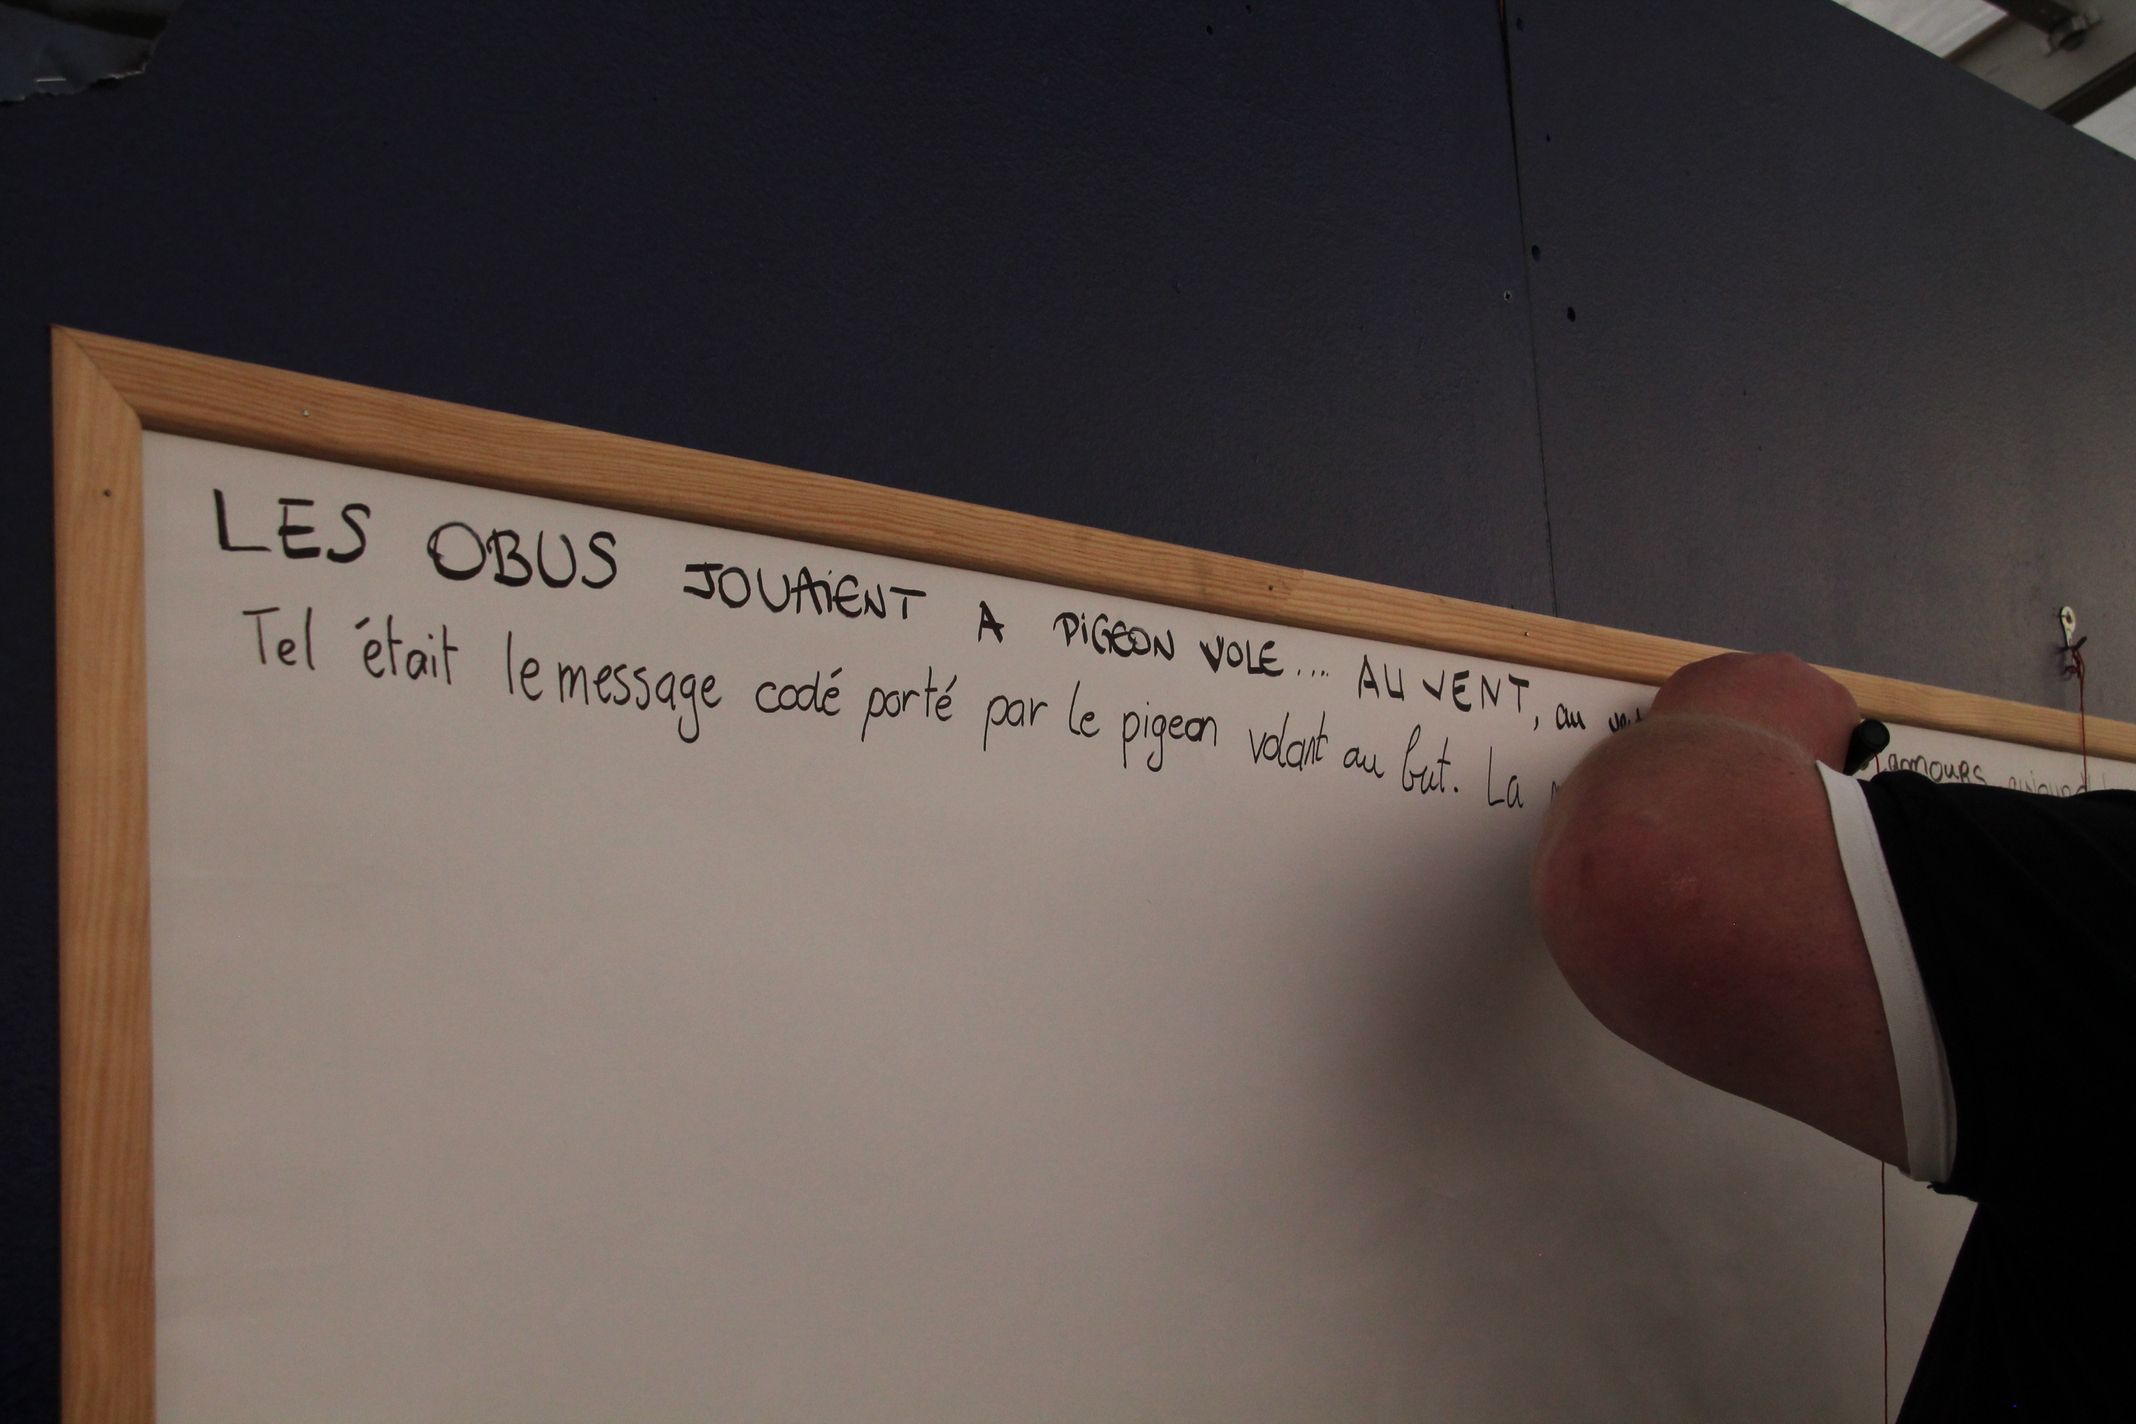 LES OBUS JOUAiENT A PiGEON VOLE.... AU VENT, au amours
Tel était le message codé porté par le pigeon volant au but. La